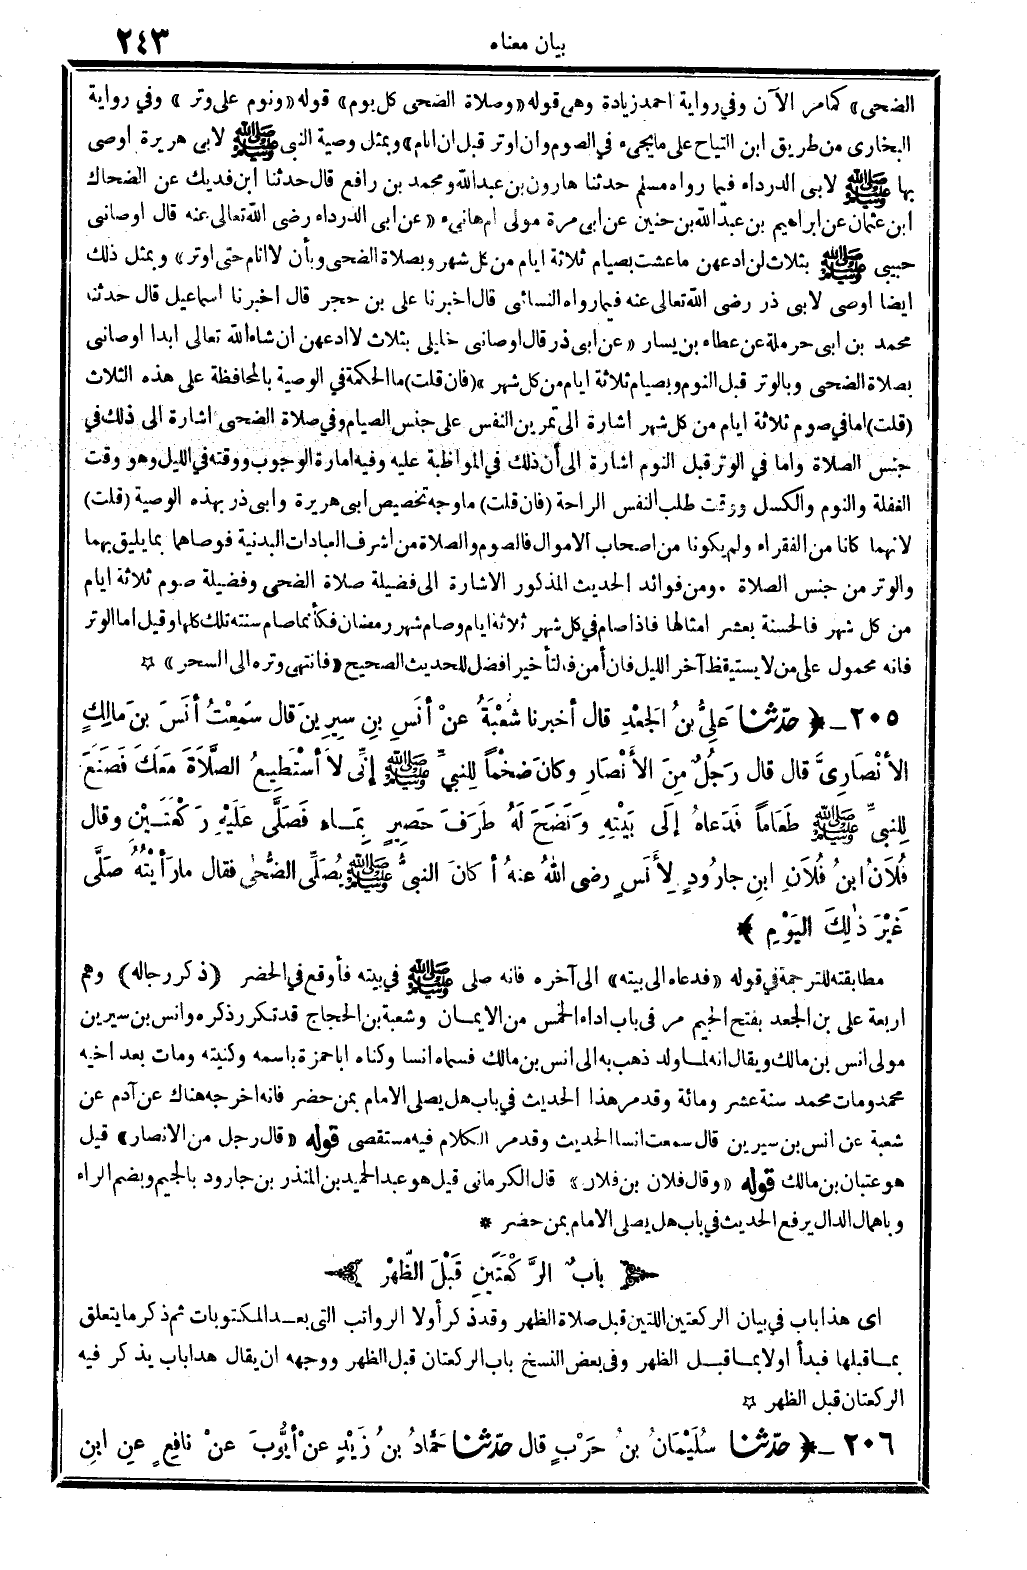 بيان معناه ٢٤٣
الضحى» كما مر الآن وفي رواية احمد زيادة وهى قوله «وصلاة الضحى كل يوم» قوله «ونوم على وتر» وفي رواية
البخارى من طريق ابن التياح على ما يجىء في الصوم وان اوتر قبل ان انام» وبمثل وصية النبى ﷺ لابى هريرة اوصى
بها ﷺ لابى الدرداء فيما رواه مسلم حدثنا هارون بن عبدالله ومحمد بن رافع قال حدثنا ابن فديك عن الضحاك
ابن عثمان عن ابراهيم بن عبدالله بن حنين عن ابى مرة مولى ام هانىء «عن ابى الدرداء رضى الله تعالى عنه قال اوصانى
حبيبى ﷺ بثلاث لن ادعهن ما عشت بصيام ثلاثة ايام من كل شهر وبصلاة الضحى وبأن لا انام حتى اوتر» وبمثل ذلك
ايضا اوصى لابى ذر رضى الله تعالى عنه فيما رواه النسائى قال اخبرنا على بن حجر قال اخبرنا اسماعيل قال حدثنا
محمد بن ابى حرملة عن عطاء بن يسار «عن ابى ذر قال اوصانى خليلى بثلاث لا ادعهن ان شاء الله تعالى ابدا اوصانى
بصلاة الضحى وبالوتر قبل النوم وبصيام ثلاثة ايام من كل شهر» (فان قلت) ما الحكمة في الوصية بالمحافظة على هذه الثلاث
(قلت) اما في صوم ثلاثة ايام من كل شهر اشارة الى تمرين النفس على جنس الصيام وفي صلاة الضحى اشارة الى ذلك في
جنس الصلاة واما في الوتر قبل النوم اشارة الى أن ذلك في المواظبة عليه وفيه امارة الوجوب ووقته في الليل وهو وقت
الغفلة والنوم والكسل ووقت طلب النفس الراحة (فان قلت) ما وجه تخصيص ابى هريرة وابى ذر بهذه الوصية (قلت)
لانهما كانا من الفقراء ولم يكونا من اصحاب الاموال فالصوم والصلاة من أشرف العبادات البدنية فوصاهما بما يليق بهما
والوتر من جنس الصلاة . ومن فوائد الحديث المذكور الاشارة الى فضيلة صلاة الضحى وفضيلة صوم ثلاثة ايام
من كل شهر فالحسنة بعشر امثالها فاذا صام في كل شهر ثلاثة ايام وصام شهر رمضان فكأنما صام سنته تلك كلها وقيل اما الوتر
فانه محمول على من لا يستيقظ آخر الليل فان أمن فالتأخير افضل للحديث الصحيح «فانتهى وتره الى السحر» ☆
٢٠٥ ـ ﴿ حدّثنا عَلِىُّ بنُ الجَعْدِ قال أخبرنا شُعْبَةُ عنْ أنَسِ بنِ سِيرِينَ قال سَمِعْتُ أنَسَ بنَ مالِكٍ
الأنْصَارِىَّ قال قال رَجُلٌ مِنَ الأَنْصَارِ وكانَ ضَخْماً لِلنبيِّ ﷺ إنِّى لا أسْتَطِيعُ الصَّلاَةَ مَعَكَ فَصَنَعَ
لِلنبيِّ ﷺ طَعَاماً فَدَعاهُ إلَى بَيْتِهِ ونَضَحَ لَهُ طَرَفَ حَصِيرٍ بِمَاءٍ فَصَلَّى عَلَيْهِ رَكْعَتَيْنِ وقال
فُلَانُ ابنُ فُلَانِ ابنِ جارُودٍ لِأَنَسٍ رضى اللهُ عنهُ أكانَ النبيُّ ﷺ يُصَلِّى الضُّحَى فقال ما رأيْتُهُ صَلَّى
غَيْرَ ذٰلِكَ اليَوْمِ ﴾
مطابقته للترجمة في قوله «فدعاه الى بيته» الى آخره فانه صلى ﷺ في بيته فأوقع في الحضر (ذكر رجاله) وهم
اربعة على بن الجعد بفتح الجيم مر في باب اداء الخمس من الايمان وشعبة بن الحجاج قد تكرر ذكره وانس بن سيرين
مولى انس بن مالك ويقال انه لما ولد ذهب به الى انس بن مالك فسماه انسا وكناه ابا حمزة باسمه وكنيته ومات بعد اخيه
محمد ومات محمد سنة عشر ومائة وقد مر هذا الحديث في باب هل يصلى الامام بمن حضر فانه اخرجه هناك عن آدم عن
شعبة عن انس بن سيرين قال سمعت انسا الحديث وقد مر الكلام فيه مستقصى قوله «قال رجل من الانصار» قيل
هو عتبان بن مالك قوله «وقال فلان بن فلان» قال الكرمانى قيل هو عبد الحميد بن المنذر بن جارود بالجيم وبضم الراء
وباهمال الدال يرفع الحديث في باب هل يصلى الامام بمن حضر *
﴿ بابُ الرَّكْعَتَيْنِ قَبْلَ الظُّهْرِ ﴾
اى هذا باب في بيان الركعتين اللتين قبل صلاة الظهر وقد ذكر أولا الرواتب التى بعد المكتوبات ثم ذكر ما يتعلق
بما قبلها فبدأ اولا بما قبل الظهر وفى بعض النسخ باب الركعتان قبل الظهر ووجهه ان يقال هذا باب يذكر فيه
الركعتان قبل الظهر ☆
٢٠٦ ـ ﴿ حدّثنا سُلَيْمَانُ بنُ حَرْبٍ قال حدّثنا حَمَّادُ بنُ زَيْدٍ عنْ أيُّوبَ عنْ نافِعٍ عنِ ابنِ